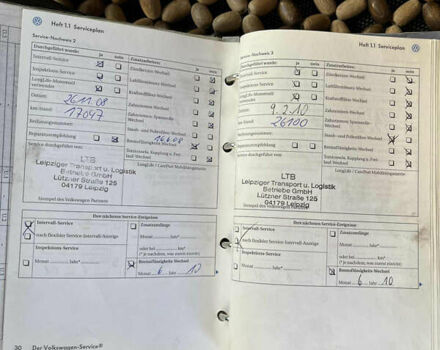 Heft 1.1 Serviceplan
Service-Nachweis 2
Durchgeführt wurde: ja nein
Intervall-Service
Inspektions-Service
LongLife-Motorenöl verwendet
Datum: 26.11.08
km-Stand: 17047
Bedienungsnummer:
Reparaturempfehlung
Service durchgeführt von:
Zusatzarbeiten: ja nein
Zündkerzen-Wechsel
Luftfilter-Wechsel
Kraftstofffilter-Wechsel
Zahnriemen-Wechsel
Zahnriemen-Spannrolle-Wechsel
Staub- und Pollenfilter-Wechsel
Bremsflüssigkeits-Wechsel
LTB
Leipziger Transport u. Logistik
Betriebe GmbH
Lützner Straße 125
04179 Leipzig
Stempel des Volkswagen Partners
Den nächsten Service-Ereignisse
Intervall-Service
nach flexibler Service-Intervall-Anzeige
Inspektions-Service
Monat Jahr *
Zusatzumfänge
oder bei km*
(* je nachdem, was zuerst eintritt)
Bremsflüssigkeits-Wechsel
Monat 6 Jahr 10
30 Der Volkswagen-Service®
Heft 1.1 Serviceplan
Service-Nachweis 3
Durchgeführt wurde: ja nein
Intervall-Service
Inspektions-Service
LongLife-Motorenöl verwendet
Datum: 9.2.10
km-Stand: 26100
Reparaturempfehlung
Service durchgeführt von:
Zusatzarbeiten: ja nein
Zündkerzen-Wechsel
Luftfilter-Wechsel
Kraftstofffilter-Wechsel
Zahnriemen-Wechsel
Staub- und Pollenfilter-Wechsel
Bremsflüssigkeits-Wechsel
LTB
Leipziger Transport u. Logistik
Betriebe GmbH
Lützner Straße 125
04179 Leipzig
Stempel des Volkswagen Partners
Den nächsten Service-Ereignisse
Intervall-Service
nach flexibler Service-Intervall-Anzeige
Inspektions-Service
Monat Jahr *
Zusatzumfänge
oder bei km*
(* je nachdem, was zuerst eintritt)
Bremsflüssigkeits-Wechsel
Monat 6 Jahr 10